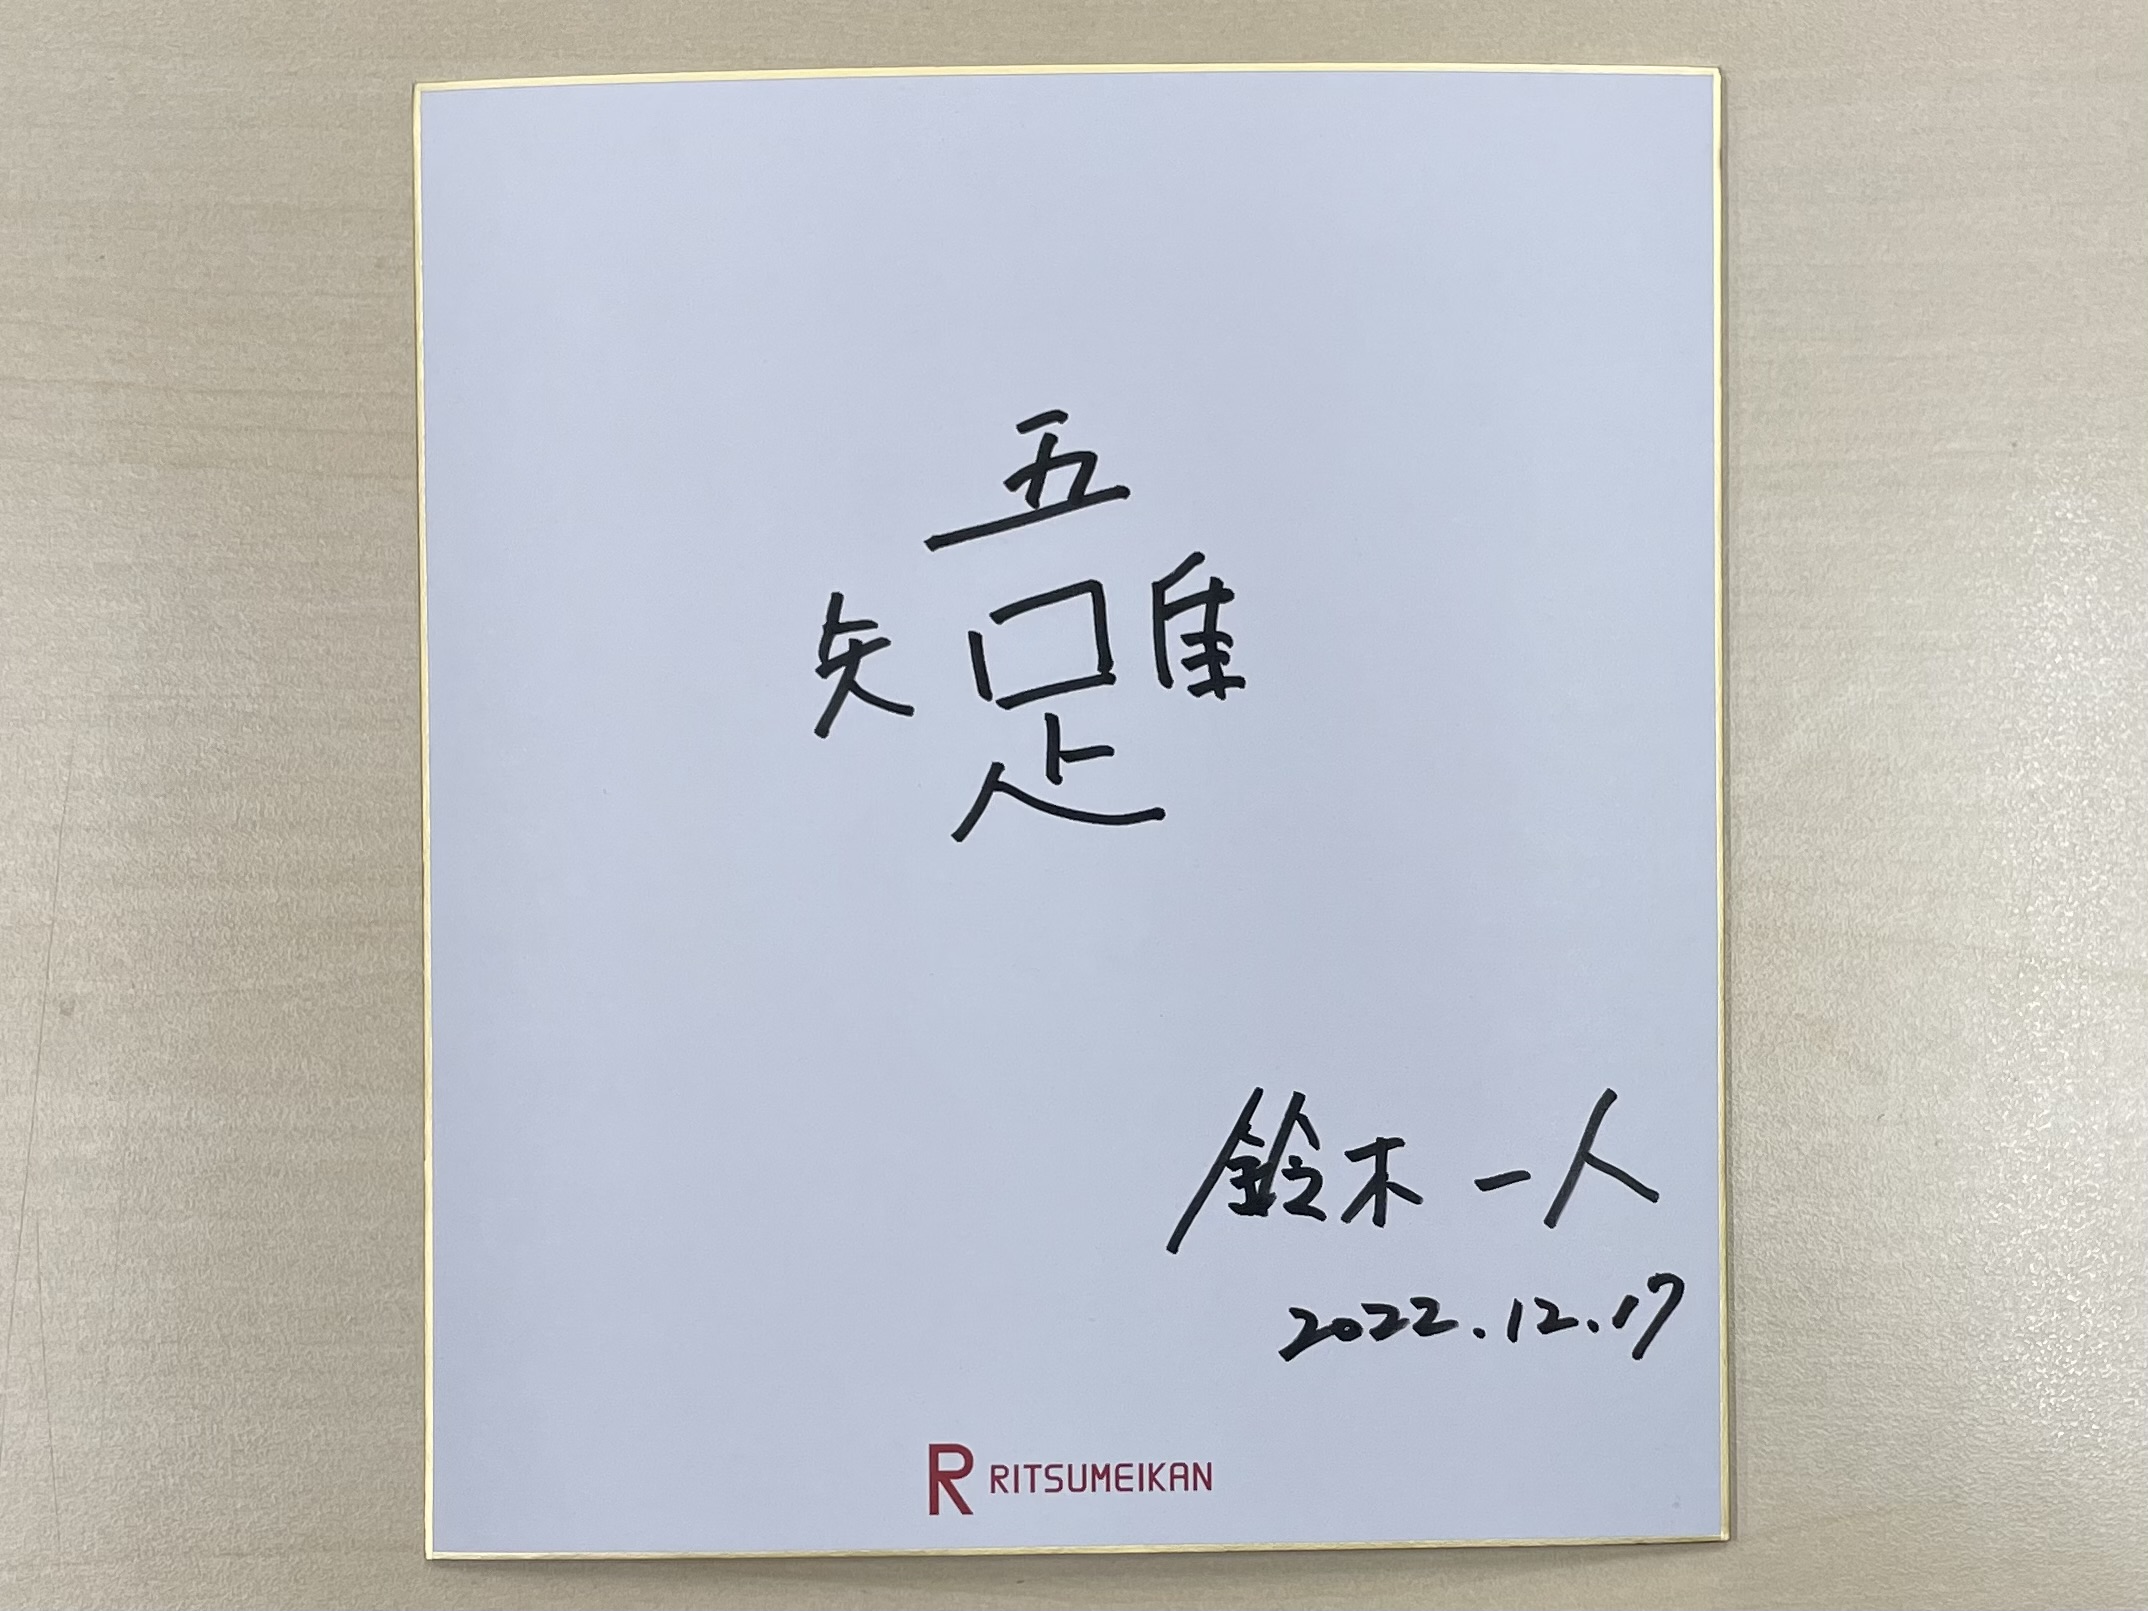 五
矢口隹
疋
鈴木一人
2022.12.17
R RITSUMEIKAN